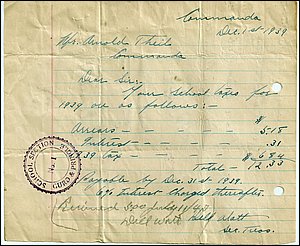 Commanda
Dec. 1st 1939
Mr. Arnold Theil
Commanda
Dear Sir:-
Your school taxes for
1939 are as follows:-
$
Arrears - 5.18
Interest - .31
39 tax - $ 6.84
Total - 12.33
Payable by Dec. 31st 1939.
6% interest charged thereafter.
Received
Sec. Treas.
SCHOOL SECTION
No. 1